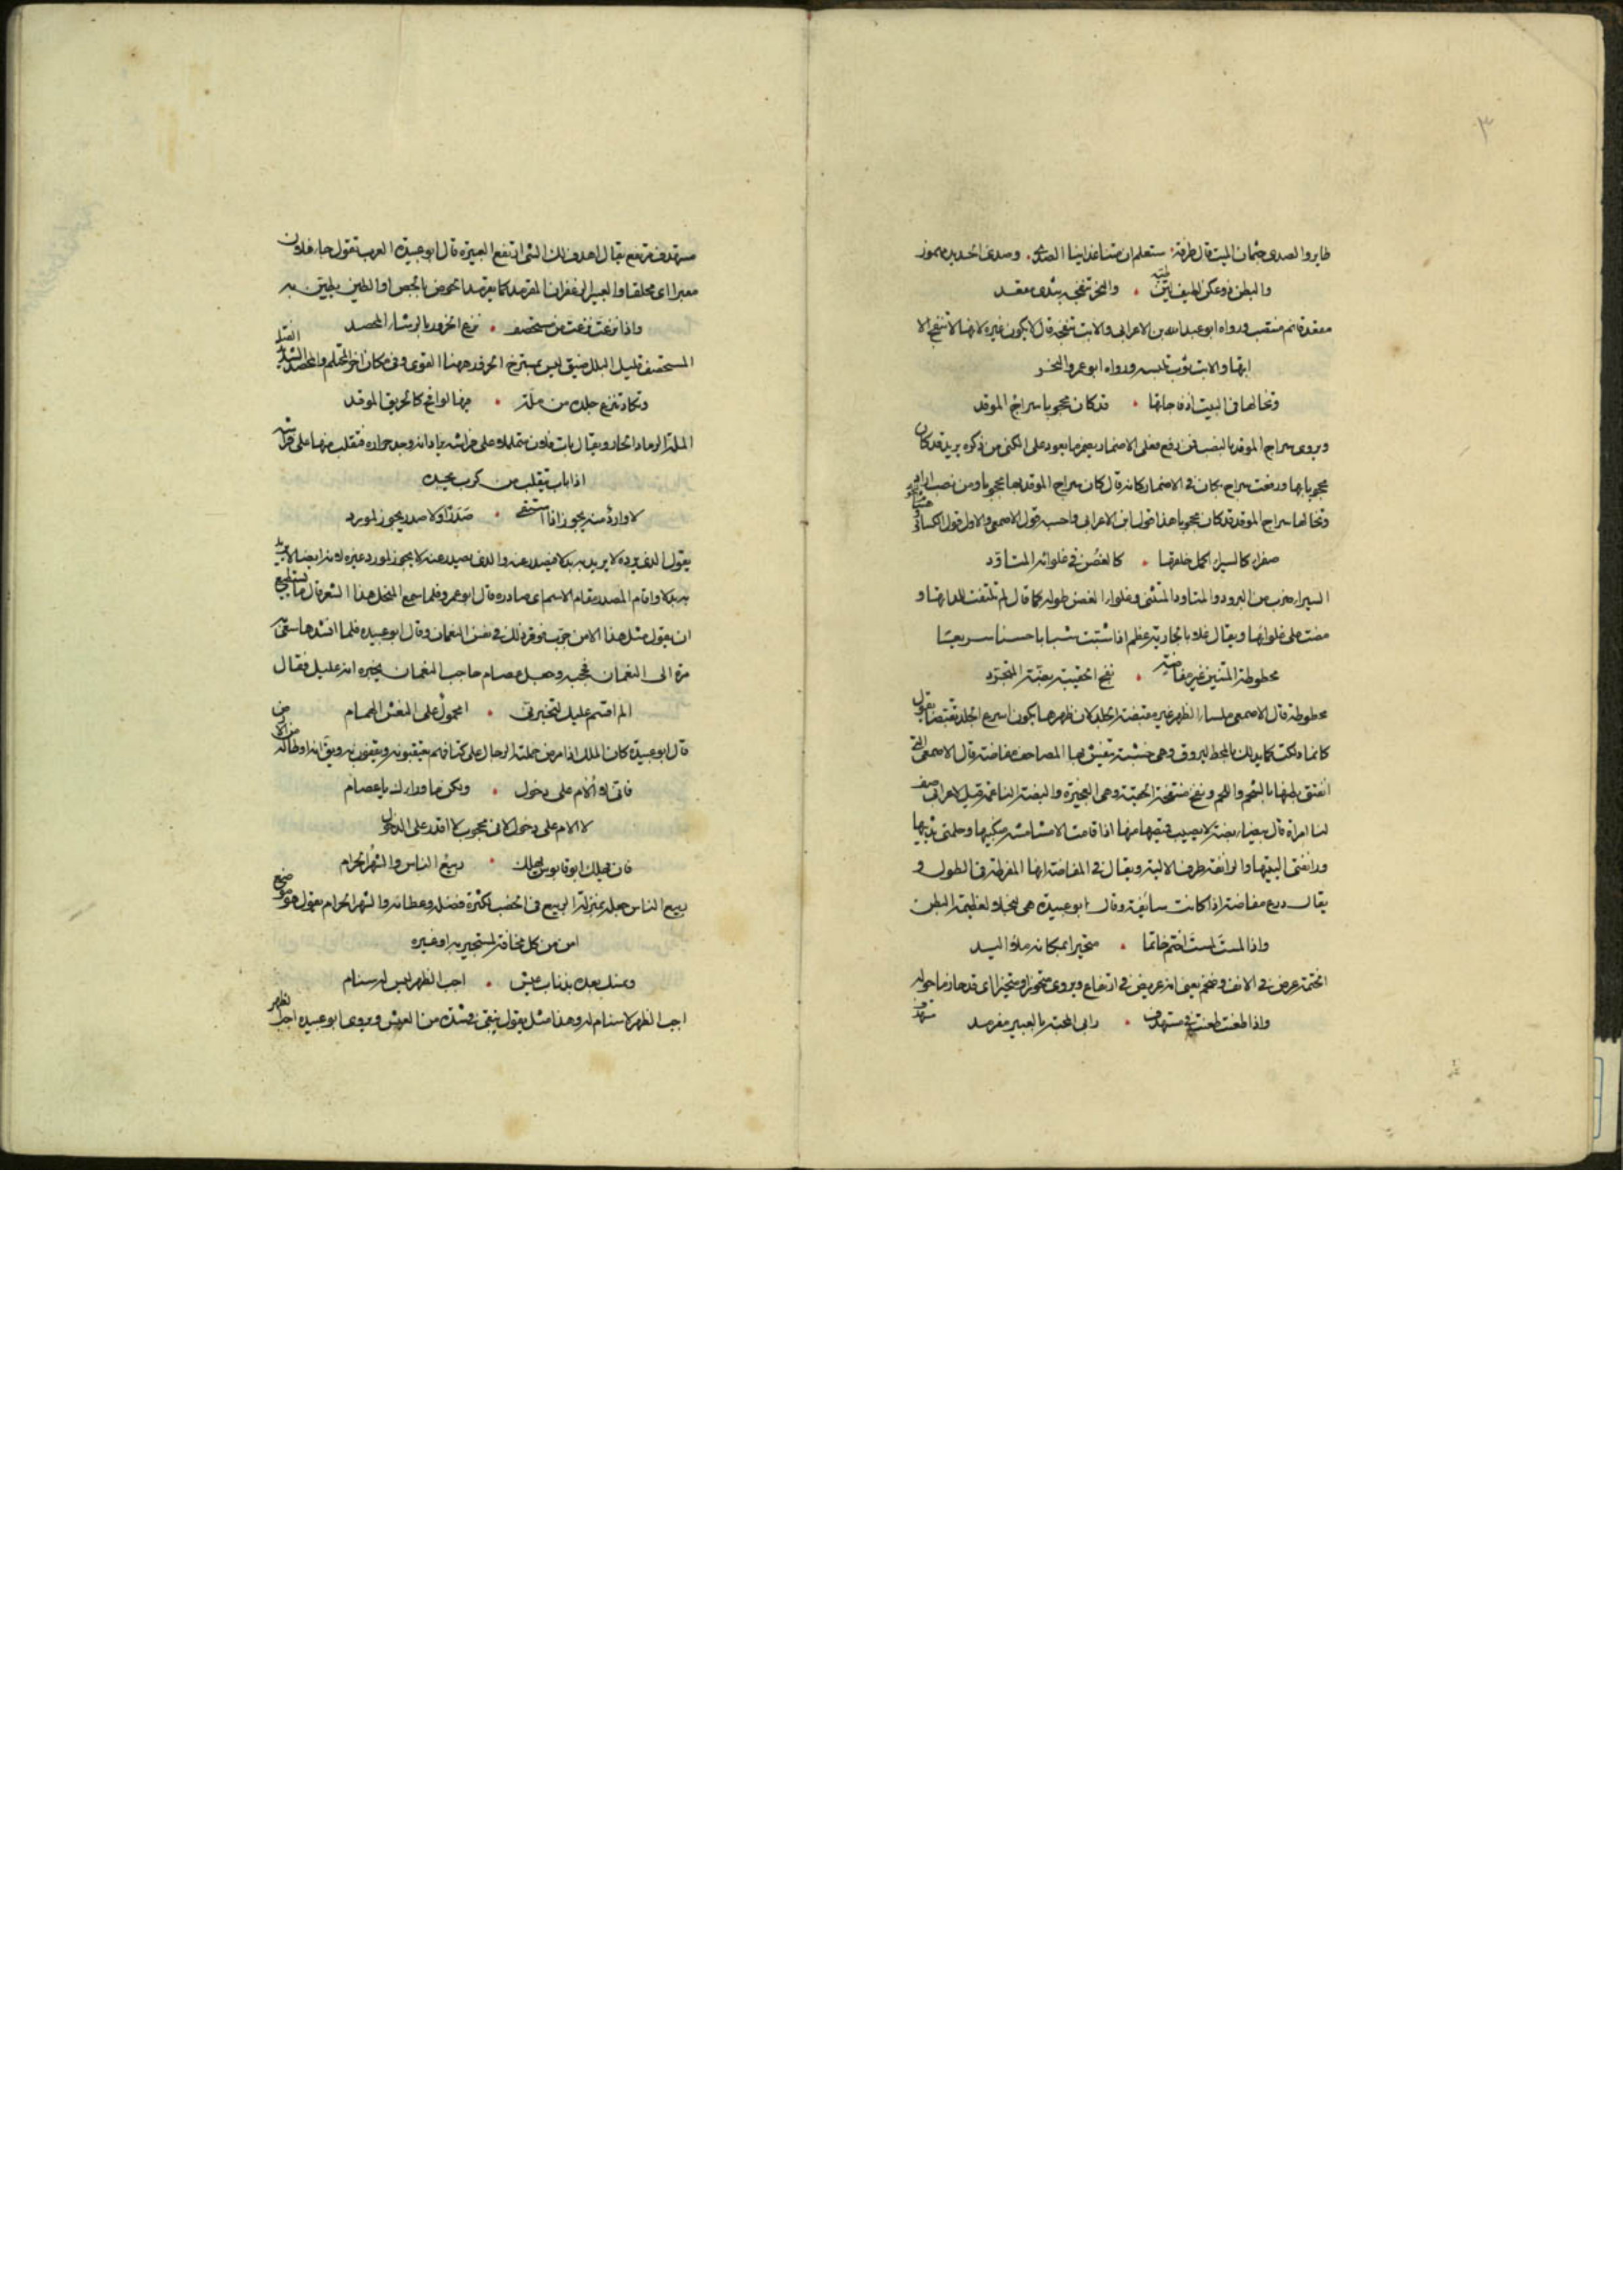 ٣
طاير والصدى جثمان الميت قال طرفة ستعلم ان متنا غدا اينا الصدى وصدى الحديد مهموز
والبطن ذو عكن لطيف طيه والنحر تنفجه بثدى مقعد
مقعد قائم منتصب ورواه ابو عبد الله بن الاعرابى والاتب تنفجه قال لا يكون غيره لانها لا تنفج الا
ابها والاتب ثوب تلبسه ورواه ابو عمرو والنحر
وتخالها فى البيت اذ فاجاتها قد كان محجوبا سراج الموقد
ويروى سراج الموقد بالنصب فمن رفع فعلى الاضمار يضمر ما يعود على الكنى من ذكره يريد قد كان
محجوبا بها ورفعت سراج بكان فى الاضمار كانه قال كان سراج الموقد بها محجوبا ومن نصب اراد
وتخالها سراج الموقد قد كان محجوبا هذا قول ابن الاعرابى واحسبه قول الاصمعى والاول قول الكسائى
صفراء كالسيراء اكمل خلقها كالغصن فى غلوائه المتأود
السيراء ضرب من البرود والمتاود المتثنى وغلواء الغصن طوله كما قال لم تلتفت للداتها و
مضت على غلوائها ويقال غلا بالجارية عظم اذا شبت شبابا حسنا سريعا
محطوطة المتنين غير مفاضة نفج الحقيبة بضة المتجرد
محطوطة قال الاصمعى ملساء الظهر غير منقبضة الجلد لان ظهرها يكون اسرع الجلد تقبضا يقول
كانما دلكت كما يدلك بالمحط البروق وهى خشبة ينقش بها المصاحف مفاضة قال الاصمعى التى
انفتق بطنها بالشحم واللحم ونفج منتفخة الحقيبة وهى العجيزة والبضة الناعمة قيل لاعرابى صف
لنا امراة قال بيضاء بضة لا يصيب قميصها منها اذا قامت الا مشاشة منكبيها وحلمتى ثدييها
ورانفتى اليتيها والرانفة طرف الالية ويقال فى المفاضة انها المفرطة فى الطول و
يقال درع مفاضة اذا كانت سابغة وقال ابو عبيدة هى النجلاء لعظيمة البطن
واذا لمست لمست اخثم جاثما متحيزا بمكانه ملأ اليد
الخثمة عرض فى الانف وضخم يعنى انه عريض فى ارتفاع ويروى متحيزا ومتحيرا اى قد حاز ما حوله
واذا طعنت طعنت فى مستهدف رابى المجسة بالعبير مقرمد
مستهدف مرتفع يقال اهدف لك الشى ارتفع العبيرة قال ابو عبيدة العرب تقول جاء فلان
معبرا اى مخلقا والعبير الزعفران المقرمد كما يقرمد الحوض بالجص او الطين يطين به
واذا نزعت نزعت من مستحصف نزع الحزور بالرشاء المحصد
المستحصف قليل البلل ضيق ليس بمسترخ الحزور ههنا القوى وفى مكان اخر المحتلم والمحصد الشديد الفتل
وتكاد تنزع جلده من ملة فيها لوافح كالحريق الموقد
الملة الرماد الحار ويقال بات فلان متململا على فراشه يراد انه وجد حراره فتقلب منها على فراشه
اذا بات يتقلب من كرب يجده
لا وارد منه يحوز اذا استقى صدرا ولا صدر يحوز لمورد
يقول الذى يرده لا يريد به بدلا فيصدر عنه والذى يصدر عنه لا يحوز لمورد غيره لانه ايضا لا يريد
به بدلا واقام المصدر مقام الاسم اى صادره قال ابو عمرو فلما سمع المنخل هذا الشعر قال ما يستطيع
ان يقول مثل هذا الا من جرب فوقر ذلك فى نفس النعمان وقال ابو عبيدة فلما انشدها سعى
مرة الى النعمان فحجبه وجعل عصام حاجب النعمان يخبره انه عليل فقال
الم اقسم عليك لتخبرنى امحمول على النعش الهمام
قال ابو عبيدة كان الملك اذا مرض حملته الرجال على اكتافهم يعتقبونه ويقفون به ويق انه اوطا له من
فانى لا ألام على دخول ولكن ما وراءك يا عصام
لا الام على دخول لانى محجوب لا اقدر على الدخول
فان يهلك ابو قابوس يهلك ربيع الناس والشهر الحرام
ربيع الناس جعله بمنزلة الربيع فى الخصب لكثرة فضله وعطائه والشهر الحرام يقول هو موضع
امن من كل مخافة لمستجير به او غيره
ونمسك بعده بذناب عيش اجب الظهر ليس له سنام
اجب الظهر لا سنام له وهذا مثل يقول نبقى فى شدة من العيش ويروى ابو عبيده اجب الظهر